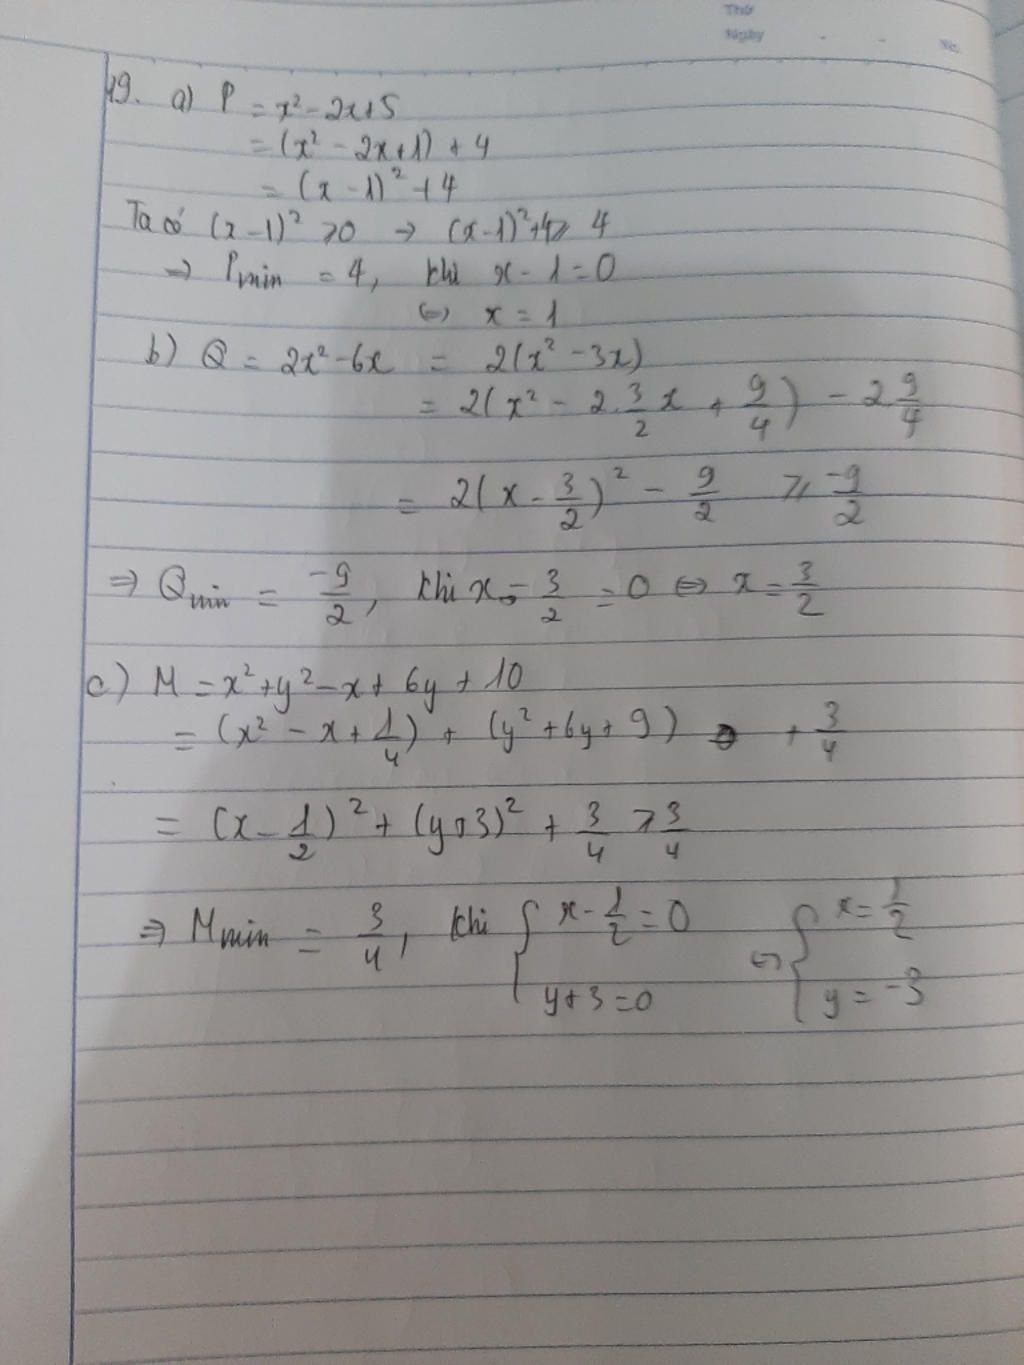 Thứ
Ngày . . No.
19. a) P = x² - 2x+5
= (x² - 2x+1) + 4
= (x - 1)² + 4
Ta có (x-1)² ⩾0 → (x-1)²+4⩾ 4
⇒ Pmin = 4, khi x - 1 = 0
⇔ x = 1
b) Q = 2x² - 6x = 2(x² - 3x)
= 2(x² - 2.3/2 x + 9/4) - 2.9/4
= 2(x - 3/2)² - 9/2 ⩾ -9/2
⇒ Qmin = -9/2, khi x - 3/2 = 0 ⇔ x = 3/2
c) M = x²+y²-x+ 6y + 10
= (x² - x + 1/4) + (y² + 6y + 9) + 3/4
= (x - 1/2)² + (y+3)² + 3/4 ⩾ 3/4
⇒ Mmin = 3/4, khi { x - 1/2 = 0 ⇔ { x = 1/2
y + 3 = 0 y = -3